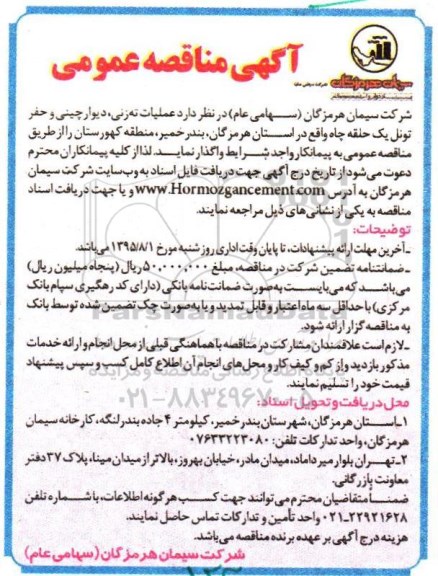 آگهی مناقصه عمومی
سیمان هرمزگان
شرکت سیمان هرمزگان (سهامی عام) در نظر دارد عملیات ته‌زنی، دیوارچینی و حفر
تونل یک حلقه چاه واقع در استان هرمزگان، بندرخمیر، منطقه کهورستان را از طریق
مناقصه عمومی به پیمانکار واجد شرایط واگذار نماید. لذا از کلیه پیمانکاران محترم
دعوت می‌شود از تاریخ درج آگهی جهت دریافت فایل اسناد به وب‌سایت شرکت سیمان
هرمزگان به آدرس www.Hormozgancement.com و یا جهت دریافت اسناد
مناقصه به یکی از نشانی‌های ذیل مراجعه نمایند.
توضیحات:
ـ آخرین مهلت ارائه پیشنهادات، تا پایان وقت اداری روز شنبه مورخ ۱۳۹۵/۸/۱ می‌باشد.
ـ ضمانتنامه تضمین شرکت در مناقصه، مبلغ ۵۰،۰۰۰،۰۰۰ ریال (پنجاه میلیون ریال)
می‌باشد که می‌بایست به‌صورت ضمانت‌نامه بانکی (دارای کد رهگیری سپام بانک
مرکزی) با حداقل سه ماه اعتبار و قابل تمدید و یا به‌صورت چک تضمین شده توسط بانک
به مناقصه گزار ارائه شود.
ـ لازم است علاقمندان مشارکت در مناقصه با هماهنگی قبلی از محل انجام و ارائه خدمات
مذکور بازدید و از کم و کیف کار و محل‌های انجام آن اطلاع کامل کسب و سپس پیشنهاد
قیمت خود را تسلیم نمایند.
۰۲۱-۸۸۳۴۹۶۷۰-۵
محل دریافت و تحویل اسناد:
۱ـ استان هرمزگان، شهرستان بندرخمیر، کیلومتر ۴ جاده بندرلنگه، کارخانه سیمان
هرمزگان، واحد تدارکات تلفن: ۰۷۶۳۳۲۲۳۰۸۰
۲ـ تهران بلوار میرداماد، میدان مادر، خیابان بهروز، بالاتر از میدان مینا، پلاک ۳۷ دفتر
معاونت بازرگانی.
ضمناً متقاضیان محترم می‌توانند جهت کسب هرگونه اطلاعات، با شماره تلفن
۰۲۱-۲۲۹۲۱۶۲۸ واحد تأمین و تدارکات تماس حاصل نمایند.
هزینه درج آگهی بر عهده برنده مناقصه می‌باشد.
شرکت سیمان هرمزگان (سهامی عام)